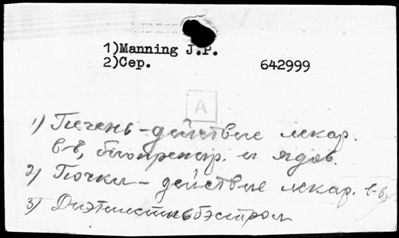 1)Manning J.P.
2)Сер. 642999
А
1) Печень - действие лекар.
в-в, биопрепар. и ядов.
2) Почки - действие лекар. в-в,
3) Диэтилстильбэстрол